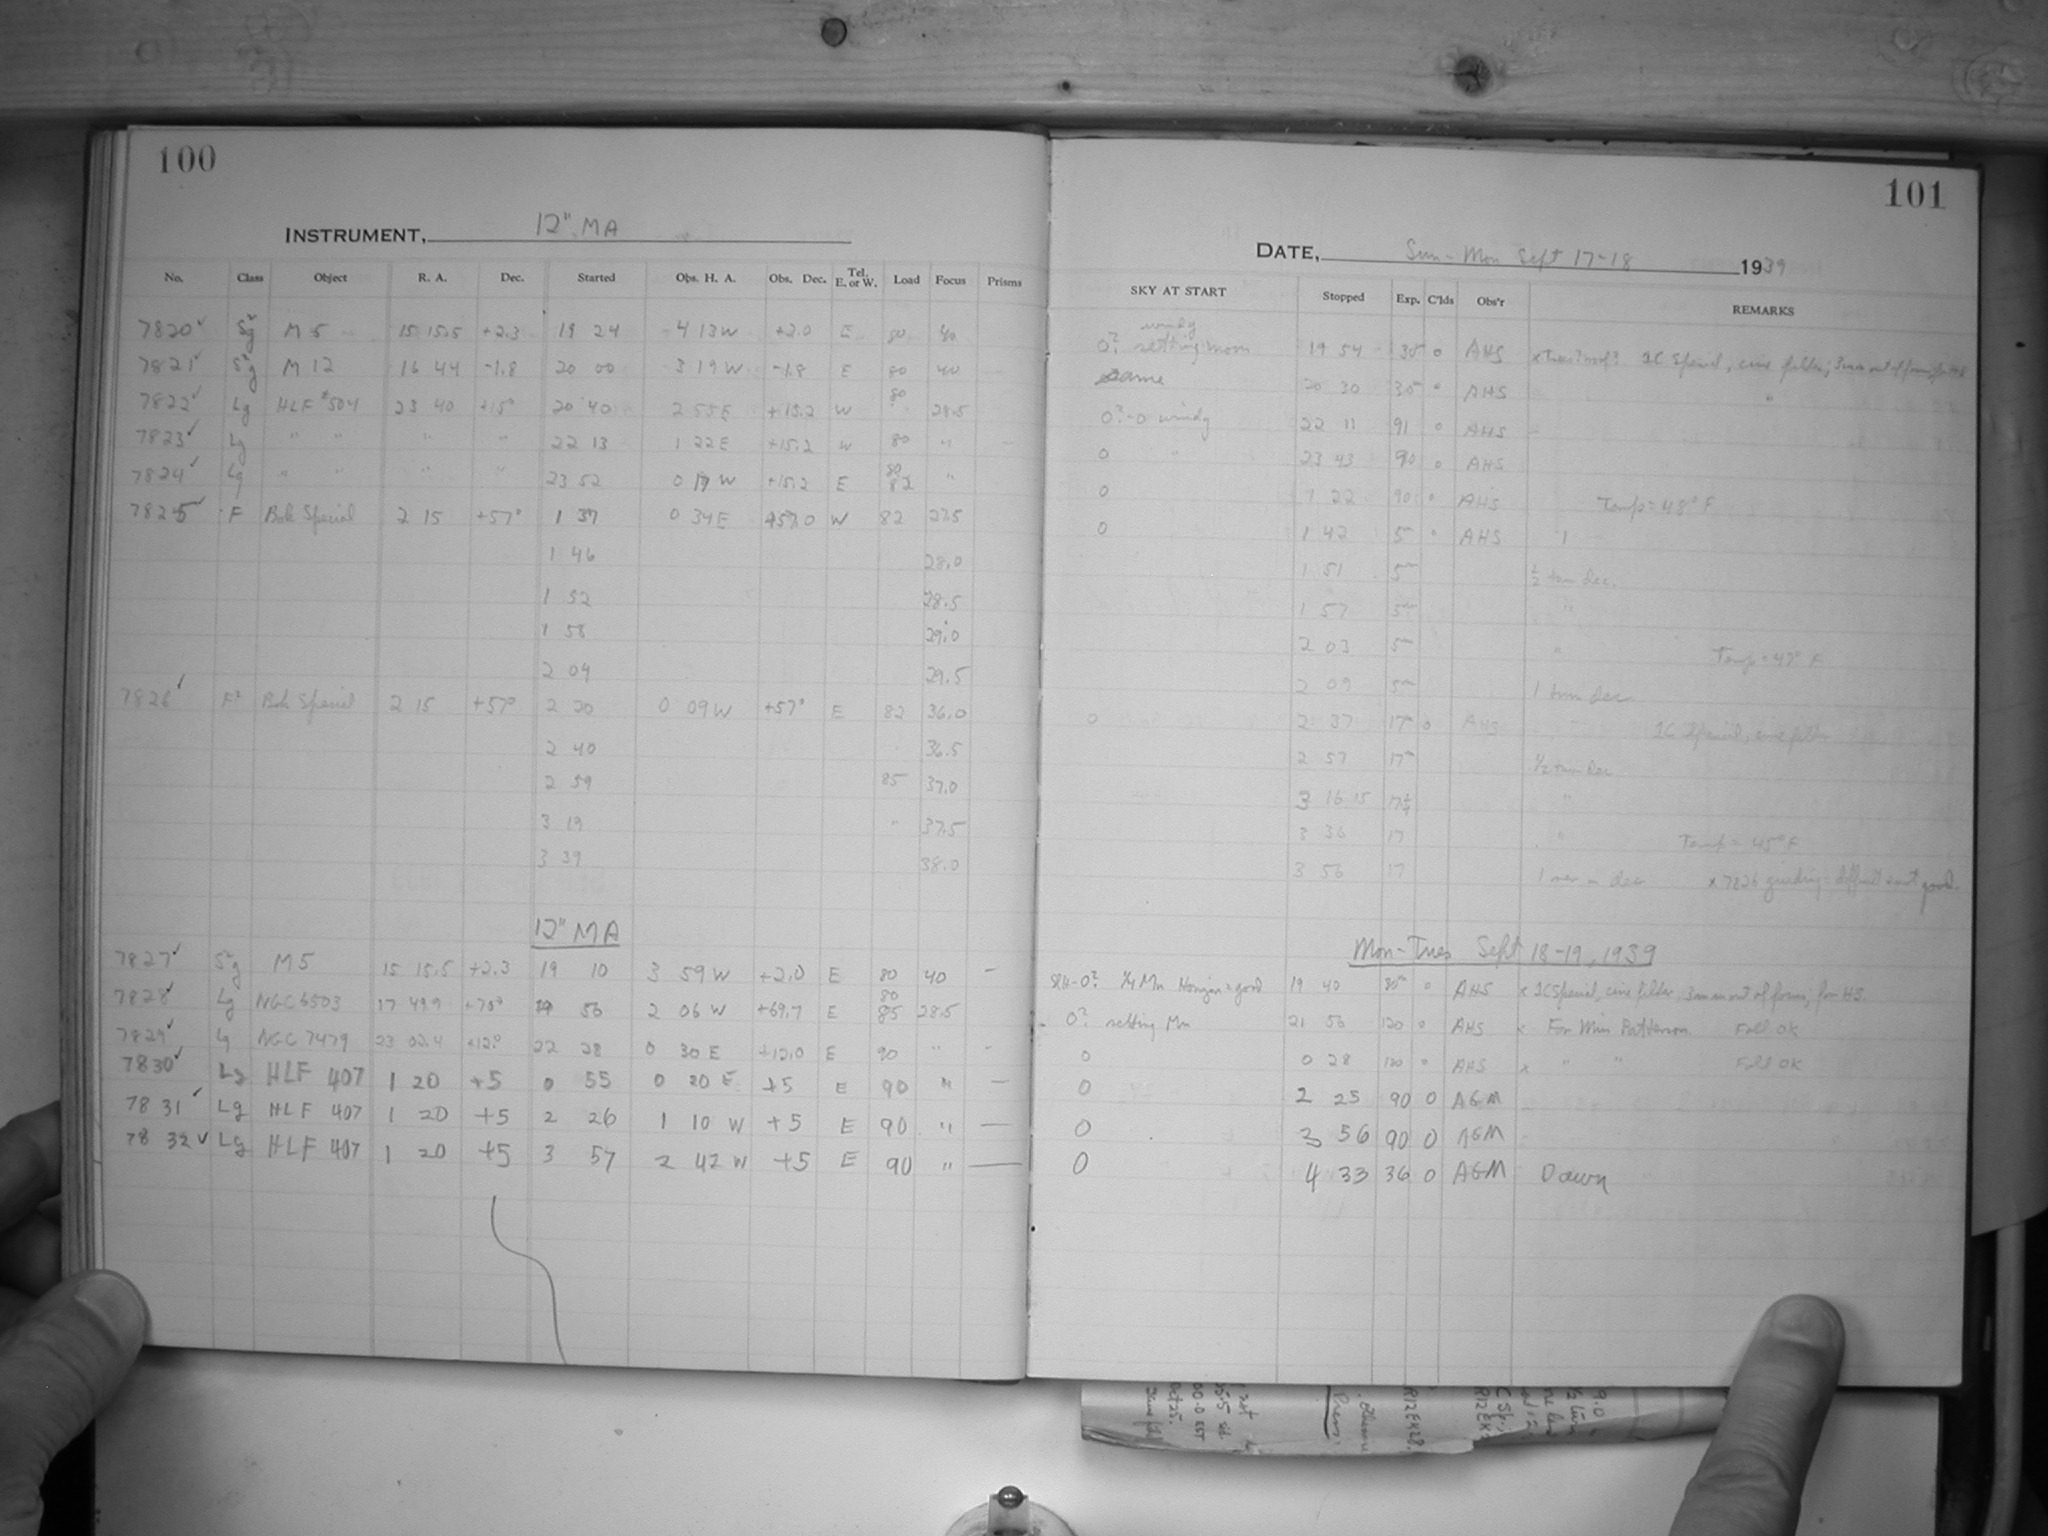 100
INSTRUMENT, 12" MA
No. Class Object R. A. Dec. Started Obs. H. A. Obs. Dec. Tel. E. or W. Load Focus Prisms
7820✓ S²g M 5 15 15.5 +2.3 19 24 4 13 W +2.0 E 80 40
7821✓ S²g M 12 16 44 -1.8 20 00 3 19 W -1.8 E 80 40
7822✓ Lg HLF #504 23 40 +15° 20 40 2 55 E +15.2 W 80 28.5
7823✓ Lg " " " " 22 13 1 22 E +15.2 W 80 "
7824✓ Lg " " " " 23 52 0 19 W +15.2 E 80 82 "
7825✓ F Bok Special 2 15 +57° 1 37 0 34 E +57.0 W 82 27.5
1 46 28.0
1 52 28.5
1 58 29.0
2 04 29.5
7826✓ F² Bok Special 2 15 +57° 2 20 0 09 W +57° E 82 36.0
2 40 36.5
2 59 85 37.0
3 19 " 37.5
3 39 38.0
12" MA
7827✓ S²g M 5 15 15.5 +2.3 19 10 3 59 W +2.0 E 80 40 —
7828✓ Lg NGC 6503 17 49.9 +70° 19 56 2 06 W +69.7 E 80 85 28.5
7829✓ Lg NGC 7479 23 02.4 +12° 22 28 0 30 E +12.0 E 90 " —
7830✓ Lg HLF 407 1 20 +5 0 55 0 20 E +5 E 90 " —
7831✓ Lg HLF 407 1 20 +5 2 26 1 10 W +5 E 90 " —
7832✓ Lg HLF 407 1 20 +5 3 57 2 42 W +5 E 90 " —
101
DATE, Sun-Mon Sept 17-18 1939
SKY AT START Stopped Exp. C'lds Obs'r REMARKS
windy
0? setting moon 19 54 30 0 AHS 1C Special, cine filter; 3mm out of focus for HS
Same 20 30 30 0 AHS "
0?-0 windy 22 11 91 0 AHS
0 " 23 43 90 0 AHS
0 1 22 90 0 AHS Temp = 48° F
0 1 42 5 0 AHS 1
1 51 5m ½ turn dec.
1 57 5m "
2 03 5m " Temp = 47° F
2 09 5m 1 turn dec
0 2 37 17m 0 AHS 1C Special, cine filter
2 57 17m ½ turn dec
3 16 15 17¼ "
3 36 17 " Temp = 45° F
3 56 17 1 rev in dec x 7826 guiding difficult not good.
Mon-Tues Sept 18-19, 1939
0? ¼ Mn Horizon = good 19 40 30m 0 AHS x 1C Special, cine filter, 3mm out of focus, for HS.
0? setting Mn 21 56 120 0 AHS x For Miss Patterson Foll OK
0 0 28 120 0 AHS x " " Foll OK
0 2 25 90 0 AGM
0 3 56 90 0 AGM
0 4 33 36 0 AGM Dawn